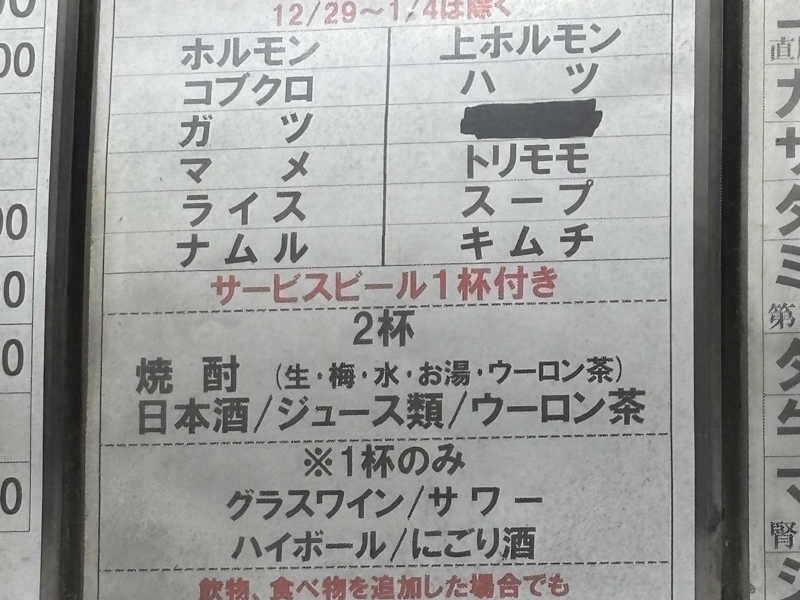 12/29～1/4は除く
ホルモン 上ホルモン
コブクロ ハツ
ガツ
マメ トリモモ
ライス スープ
ナムル キムチ
サービスビール1杯付き
2杯
焼酎 (生・梅・水・お湯・ウーロン茶)
日本酒/ジュース類/ウーロン茶
※1杯のみ
グラスワイン/サワー
ハイボール/にごり酒
飲物、食べ物を追加した場合でも